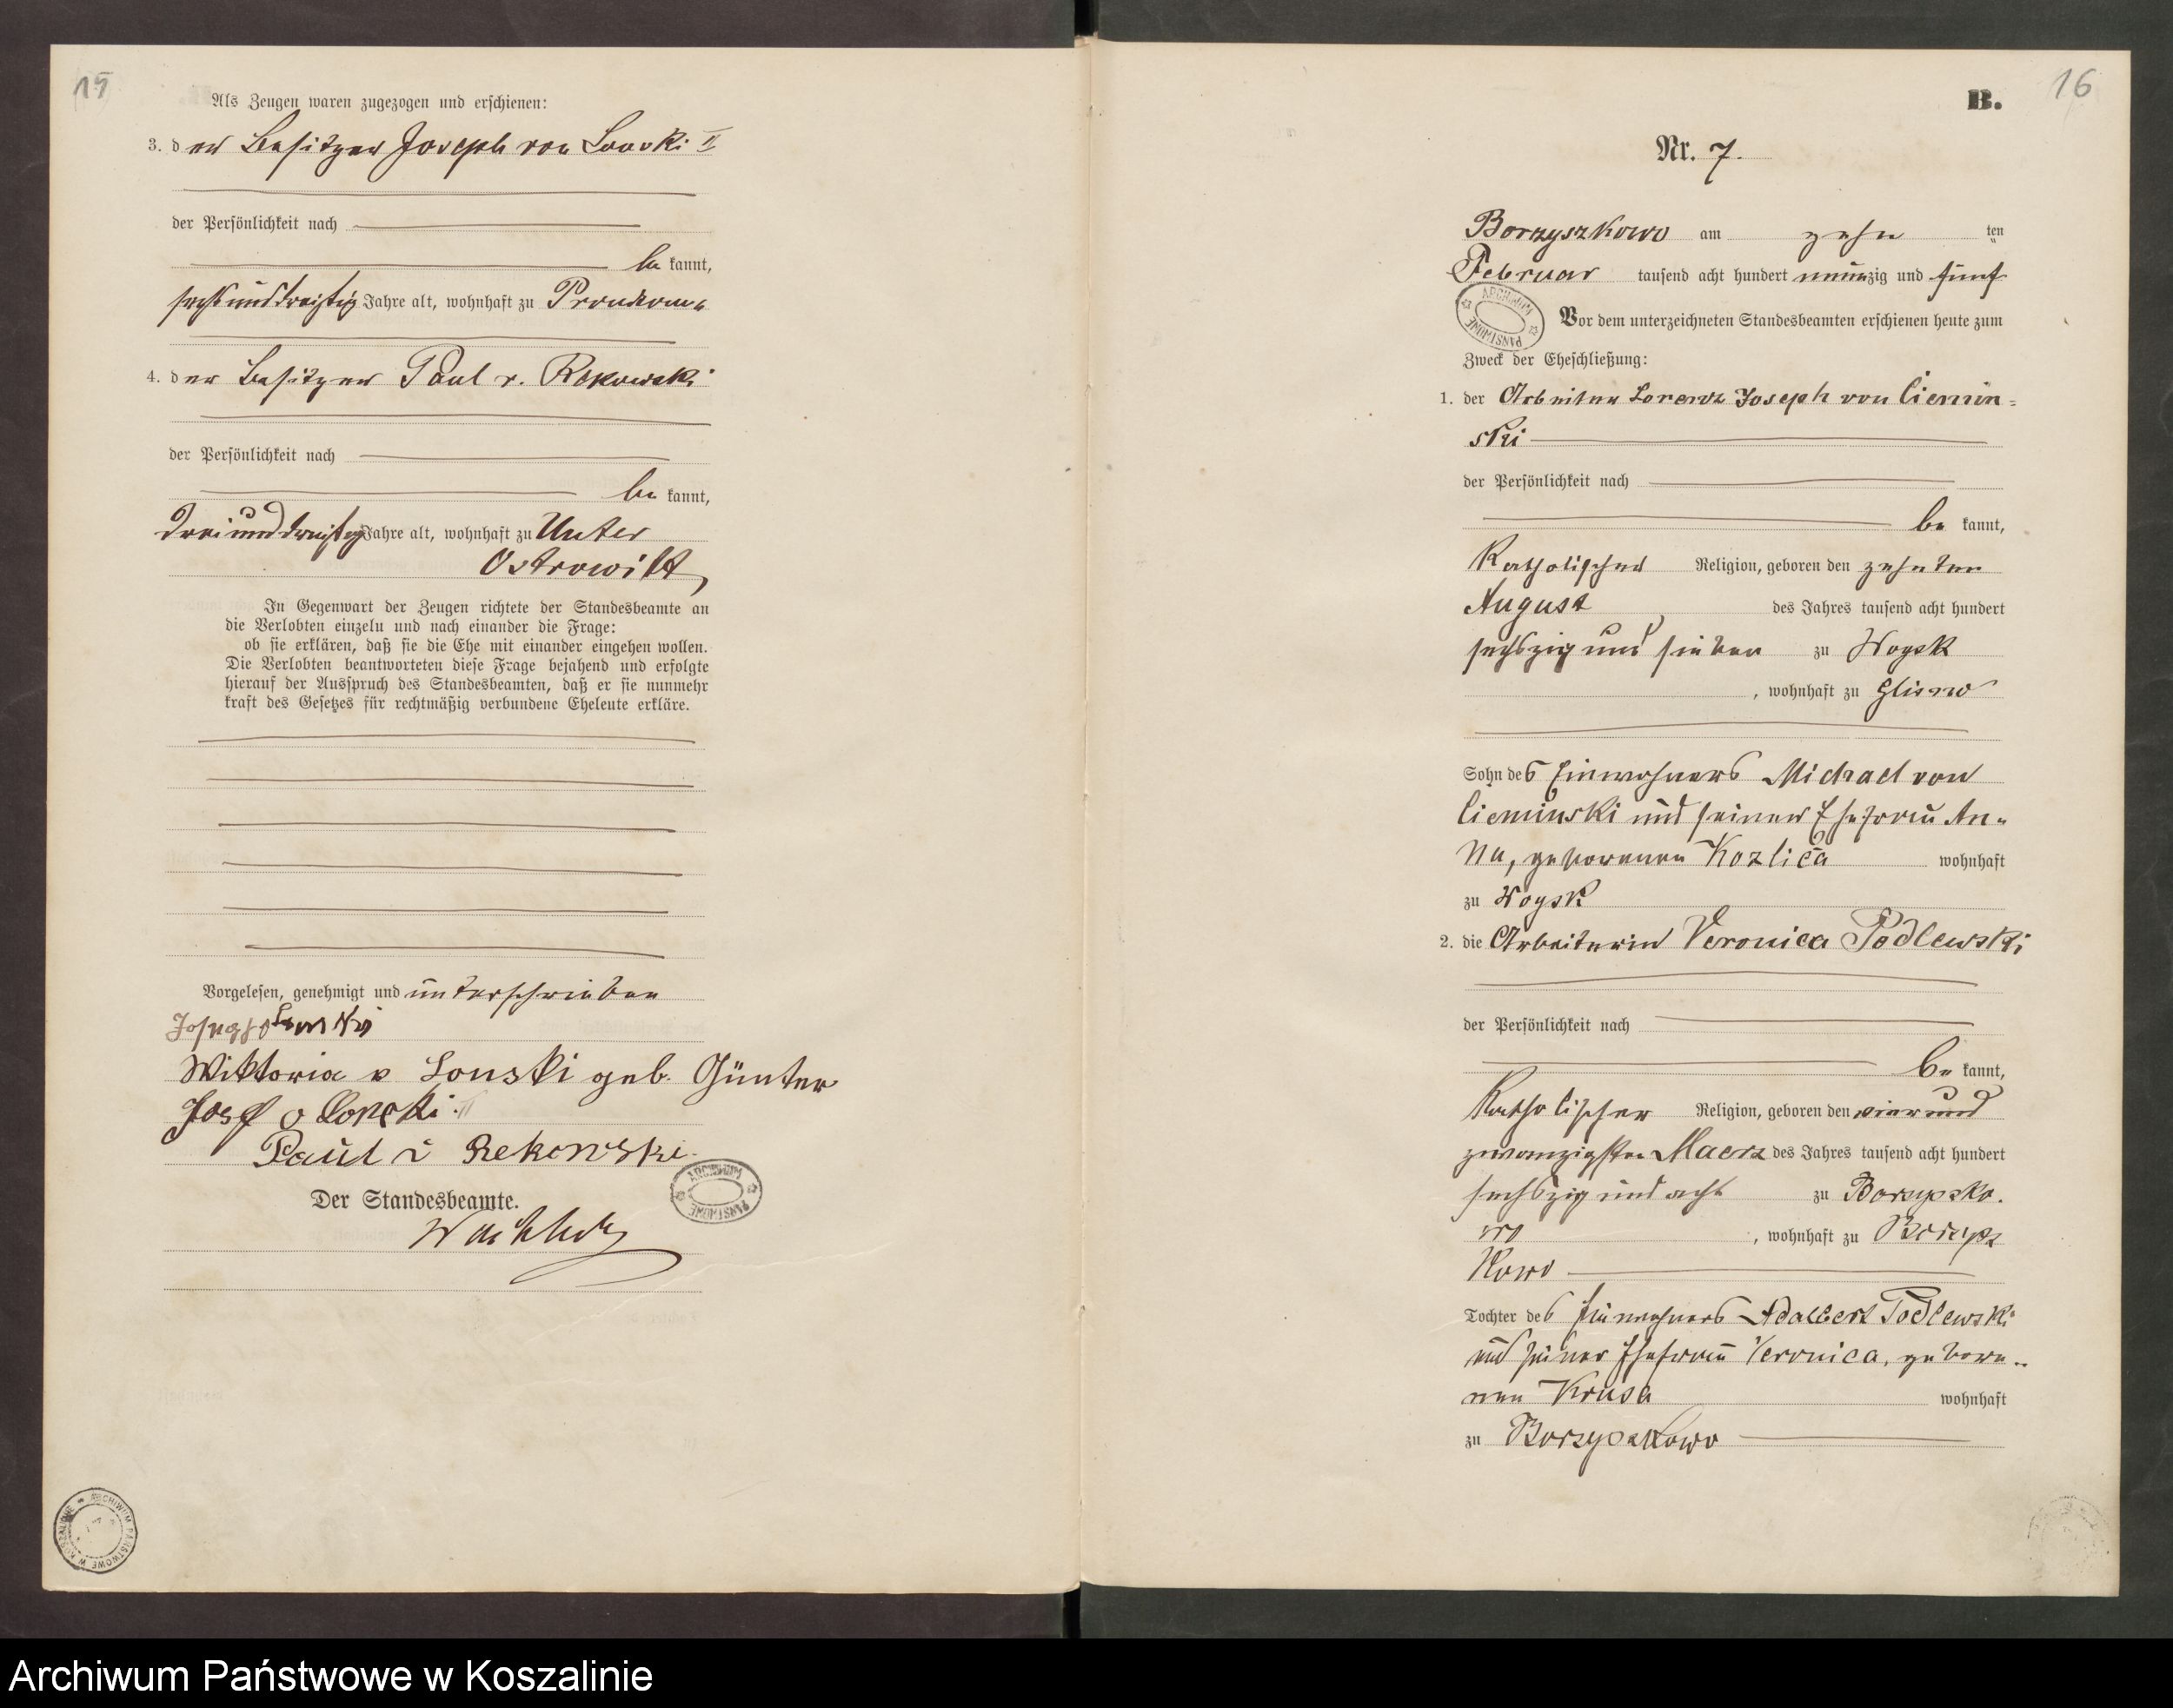 15
Als Zeugen waren zugezogen und erschienen:
3. der Besitzer Joseph von Lonski II
der Persönlichkeit nach
be kannt,
sechsunddreißig Jahre alt, wohnhaft zu
4. der Besitzer Paul v. Rekowski
der Persönlichkeit nach
be kannt,
dreiunddreißig Jahre alt, wohnhaft zu Unter
Ostrowitt,
In Gegenwart der Zeugen richtete der Standesbeamte an
die Verlobten einzeln und nach einander die Frage:
ob sie erklären, daß sie die Ehe mit einander eingehen wollen.
Die Verlobten beantworteten diese Frage bejahend und erfolgte
hierauf der Ausspruch des Standesbeamten, daß er sie nunmehr
kraft des Gesetzes für rechtmäßig verbundene Eheleute erkläre.
Vorgelesen, genehmigt und unterschrieben
Wiktoria v Lonski geb. Günter
Josef v Lonski II
Paul v Rekowski
Der Standesbeamte.
ARCHIWUM PAŃSTWOWE
ARCHIWUM PAŃSTWOWE W KOSZALINIE
16
B.
Nr. 7.
Borzyszkowo am zehn ten
Februar tausend acht hundert neunzig und fünf
ARCHIWUM PAŃSTWOWE
Vor dem unterzeichneten Standesbeamten erschienen heute zum
Zweck der Eheschließung:
1. der Arbeiter Lorenz Joseph von Ciemin=
ski
der Persönlichkeit nach
be kannt,
Katholischer Religion, geboren den zehnten
August des Jahres tausend acht hundert
sechszig und sieben zu Woysk
, wohnhaft zu Glisno
Sohn des Einwohners Michael von
Cieminski und seiner Ehefrau An-
na, geborenen Kozlica wohnhaft
zu Woysk
2. die Arbeiterin Veronica Podlewski
der Persönlichkeit nach
be kannt,
Katholischer Religion, geboren den vierund
zwanzigsten Maerz des Jahres tausend acht hundert
sechszig und acht zu Borzyszko-
wo , wohnhaft zu Borzysz
kowo
Tochter des Einwohners Adalbert Podlewski
und seiner Ehefrau Veronica, gebore-
nen Krusa wohnhaft
zu Borzyszkowo
Archiwum Państwowe w Koszalinie